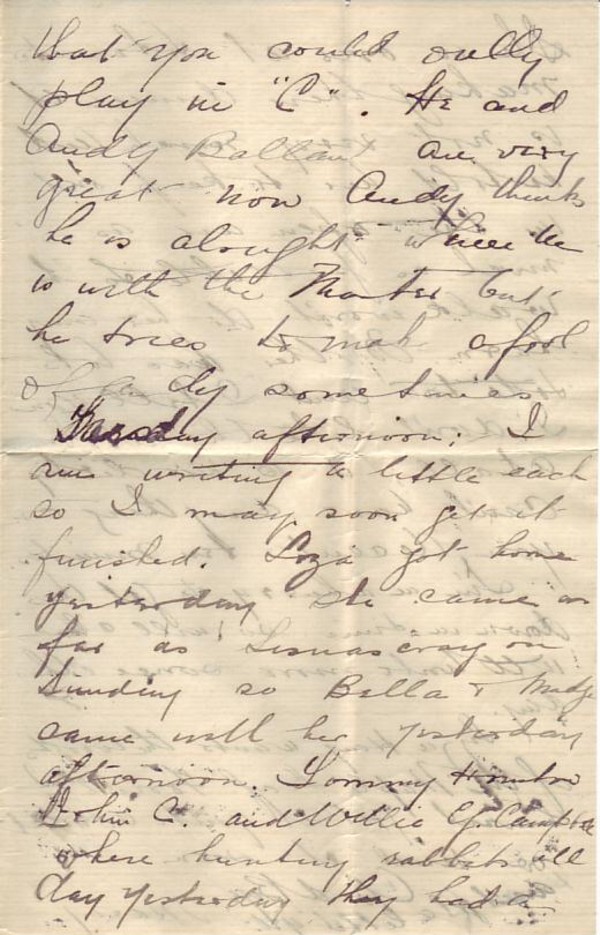 that you could only
play in "C". He and
Andy are very
great now Andy thinks
he is alright when he
is with the Master but
he tries to mak a fool
of an dy sometimes
Tuesday afternoon: I
am writing a little each
so I may soon get it
finished. got home
yesterday she came as
far as on
Sunday so Bella & Midge
came with her yesterday
afternoon. Tommy Houston
John C. and Willie G. Campbell
where hunting rabbits all
day yesterday they had a